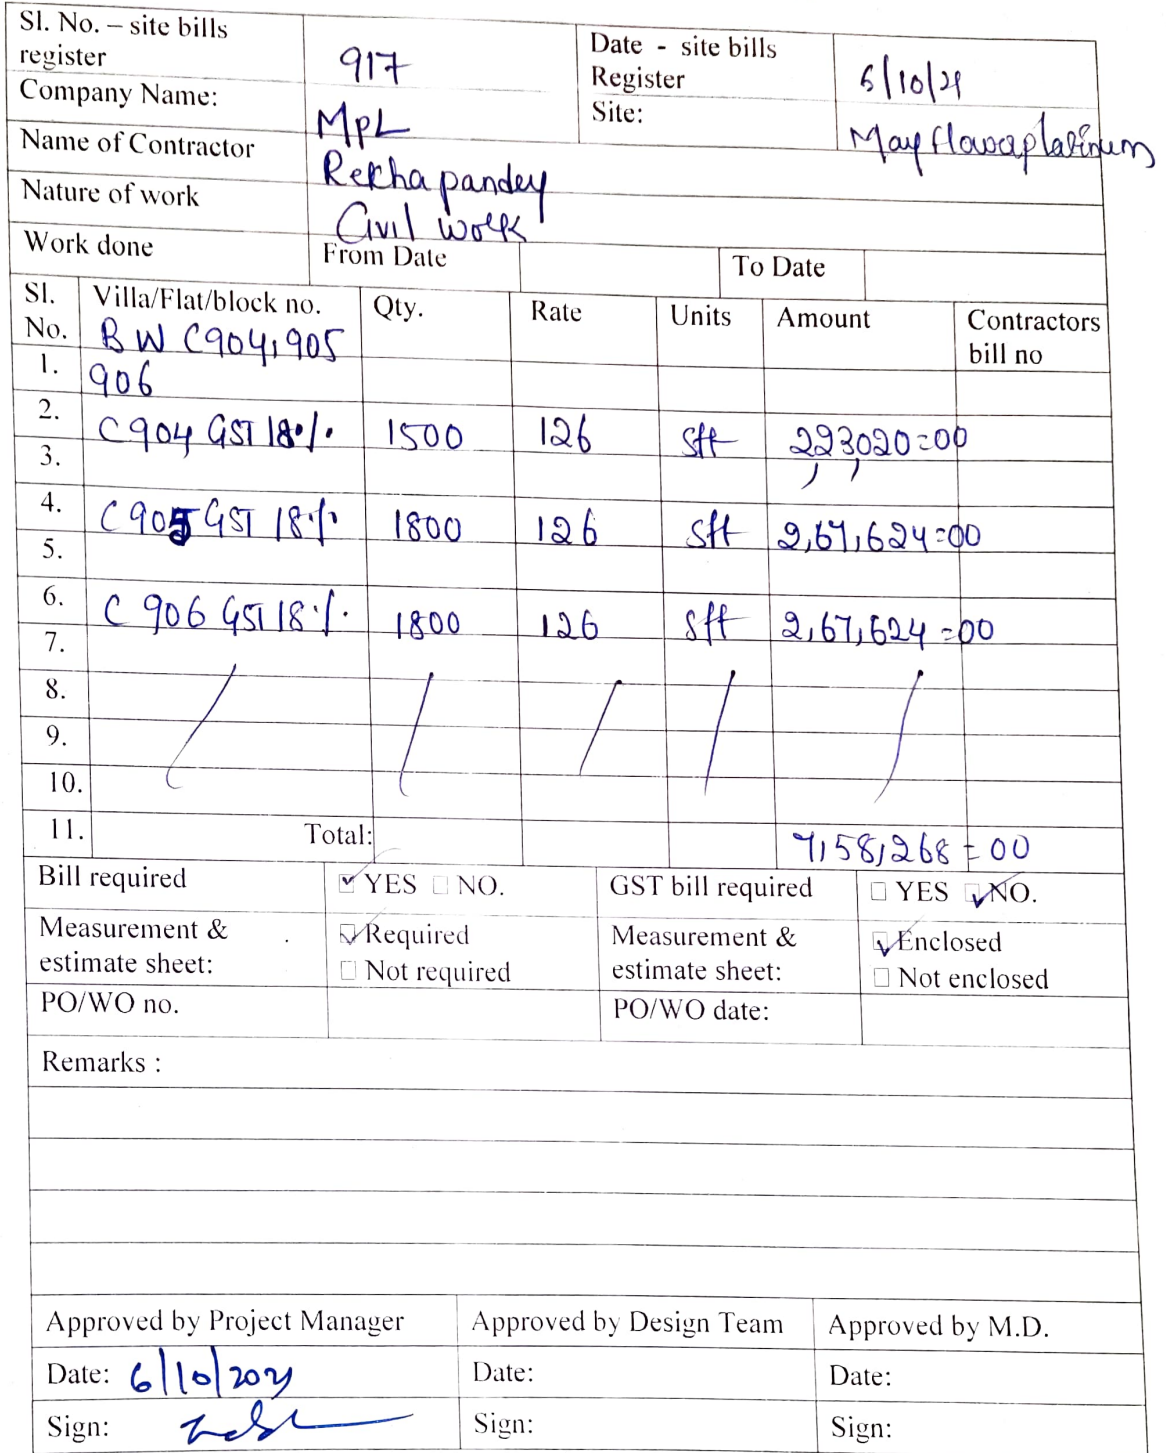 Sl. No. – site bills register 917 Date - site bills Register 6/10/21
Company Name: MPL Site: May flowerplatinum
Name of Contractor Rekha pandey
Nature of work Civil work
Work done From Date To Date
Sl. No. Villa/Flat/block no. Qty. Rate Units Amount Contractors bill no
BW C904,905
1. 906
2. C904 GST 18% 1500 126 sft 223020=00
3.
4. C905 GST 18% 1800 126 sft 2,67,624=00
5.
6. C 906 GST 18% 1800 126 sft 2,67,624=00
7.
8.
9.
10.
11. Total: 7,58,268=00
Bill required YES NO. GST bill required YES NO.
Measurement & estimate sheet: Required Measurement & estimate sheet: Enclosed
Not required Not enclosed
PO/WO no. PO/WO date:
Remarks :
Approved by Project Manager Approved by Design Team Approved by M.D.
Date: 6/10/2021 Date: Date:
Sign: Sign: Sign: